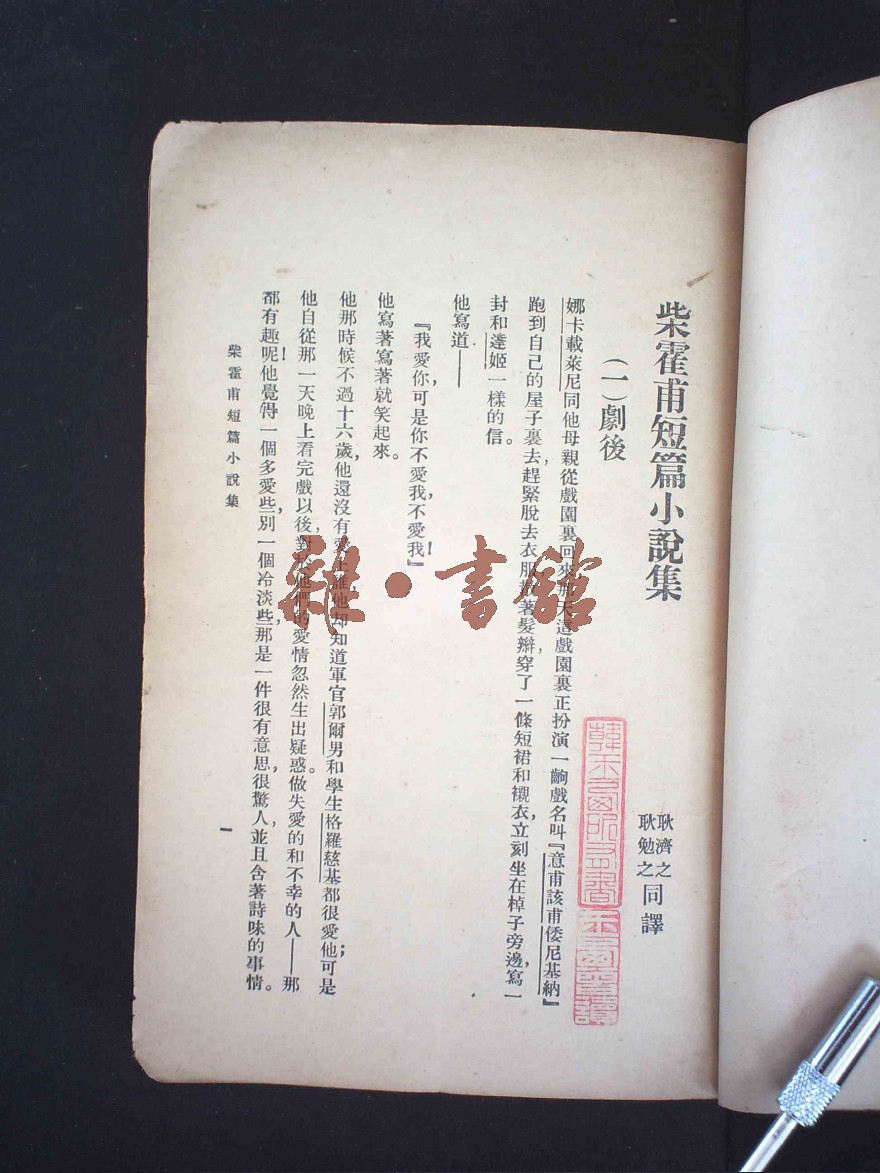 柴霍甫短篇小說集
耿濟之
耿勉之
同譯
(一)劇後
娜卡載萊尼同他母親從戲園裏回來，那天這戲園裏正扮演一齣戲名叫『意甫該甫倭尼基納』
跑到自己的屋子裏去，趕緊脫去衣服，散著髮辮，穿了一條短裙和襯衣，立刻坐在棹子旁邊，寫一
封和達姬一樣的信。
他寫道——
『我愛你，可是你不愛我，不愛我！』
他寫著寫著就笑起來。
他那時候不過十六歲，他還沒有愛上誰，他却知道軍官郭爾男和學生格羅慈基都很愛他；可是
他自從那一天晚上看完戲以後，對於他們的愛情忽然生出疑惑。做失愛的和不幸的人——那
都有趣呢！他覺得一個多愛些，別一個冷淡些，那是一件很有意思，很驚人，並且含著詩味的事情。
柴霍甫短篇小說集
一
雜·書館